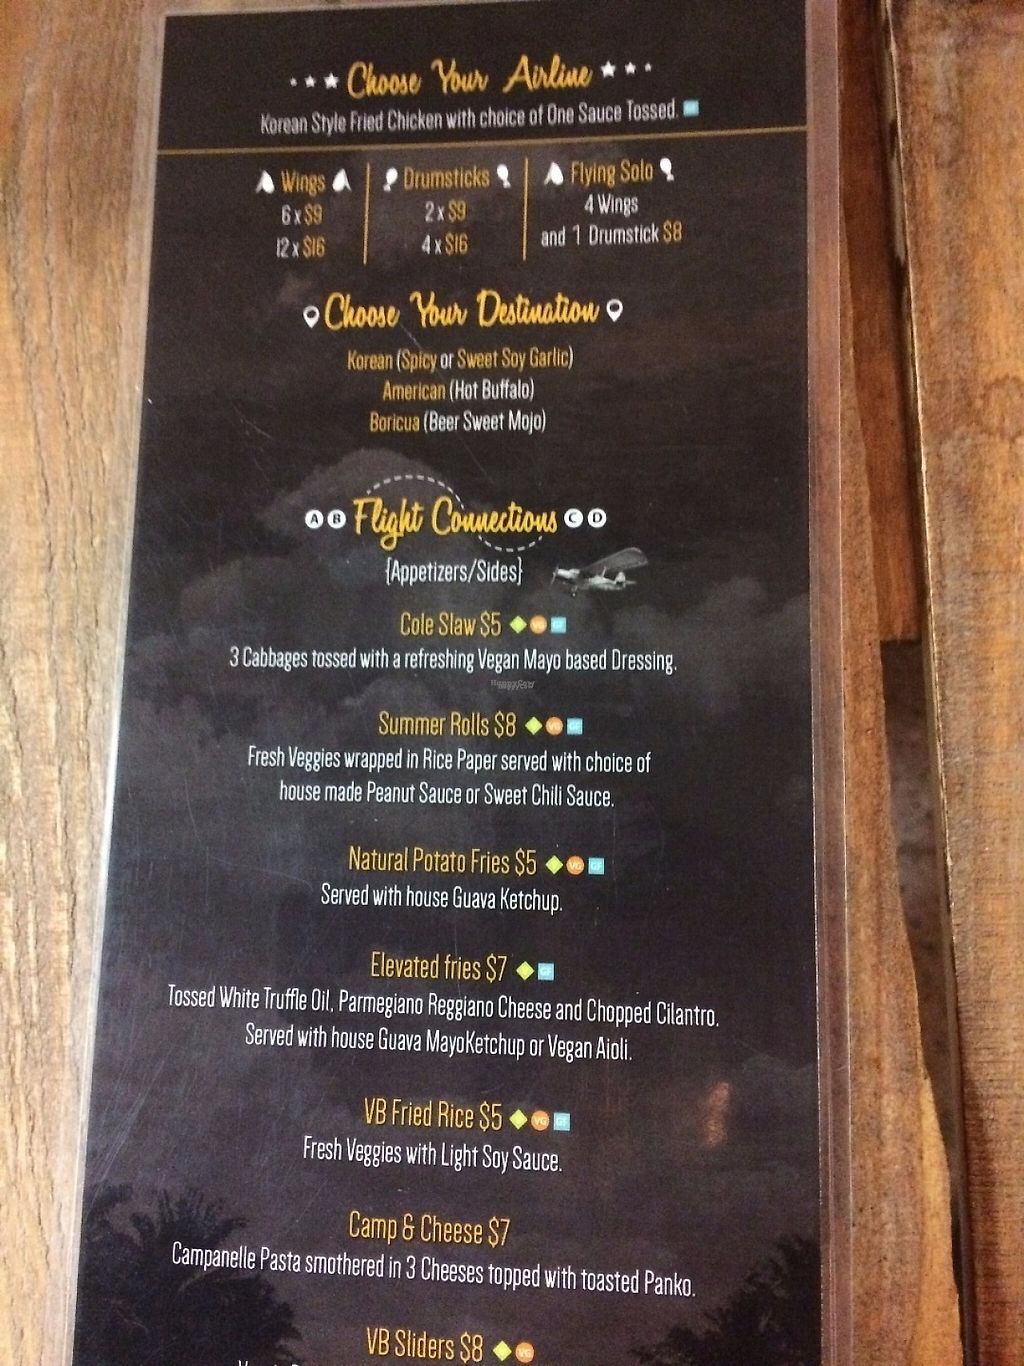 Choose Your Airline
Korean Style Fried Chicken with choice of One Sauce Tossed. GF
Wings
6 x $9
12 x $16
Drumsticks
2 x $9
4 x $16
Flying Solo
4 Wings
and 1 Drumstick $8
Choose Your Destination
Korean (Spicy or Sweet Soy Garlic)
American (Hot Buffalo)
Boricua (Beer Sweet Mojo)
A B Flight Connections C D
{Appetizers/Sides}
Cole Slaw $5 VG GF
3 Cabbages tossed with a refreshing Vegan Mayo based Dressing.
HappyCow
Summer Rolls $8 VG GF
Fresh Veggies wrapped in Rice Paper served with choice of
house made Peanut Sauce or Sweet Chili Sauce.
Natural Potato Fries $5 VG GF
Served with house Guava Ketchup.
Elevated fries $7 GF
Tossed White Truffle Oil, Parmegiano Reggiano Cheese and Chopped Cilantro.
Served with house Guava MayoKetchup or Vegan Aioli.
VB Fried Rice $5 VG GF
Fresh Veggies with Light Soy Sauce.
Camp & Cheese $7
Campanelle Pasta smothered in 3 Cheeses topped with toasted Panko.
VB Sliders $8 VG